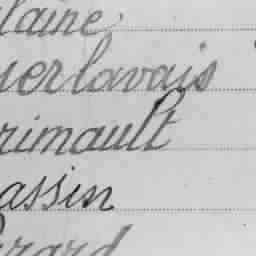 laine
uerlavais
rimault
assin
érard